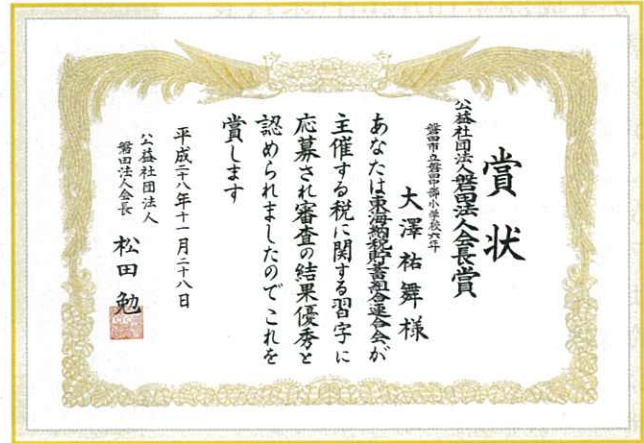 賞状
公益社団法人磐田法人会長賞
磐田市立磐田中部小学校六年
大澤祐舞様
あなたは東海納税貯蓄組合連合会が
主催する税に関する習字に
応募され審査の結果優秀と
認められましたのでこれを
賞します
平成二十八年十一月二十八日
公益社団法人
磐田法人会長 松田勉